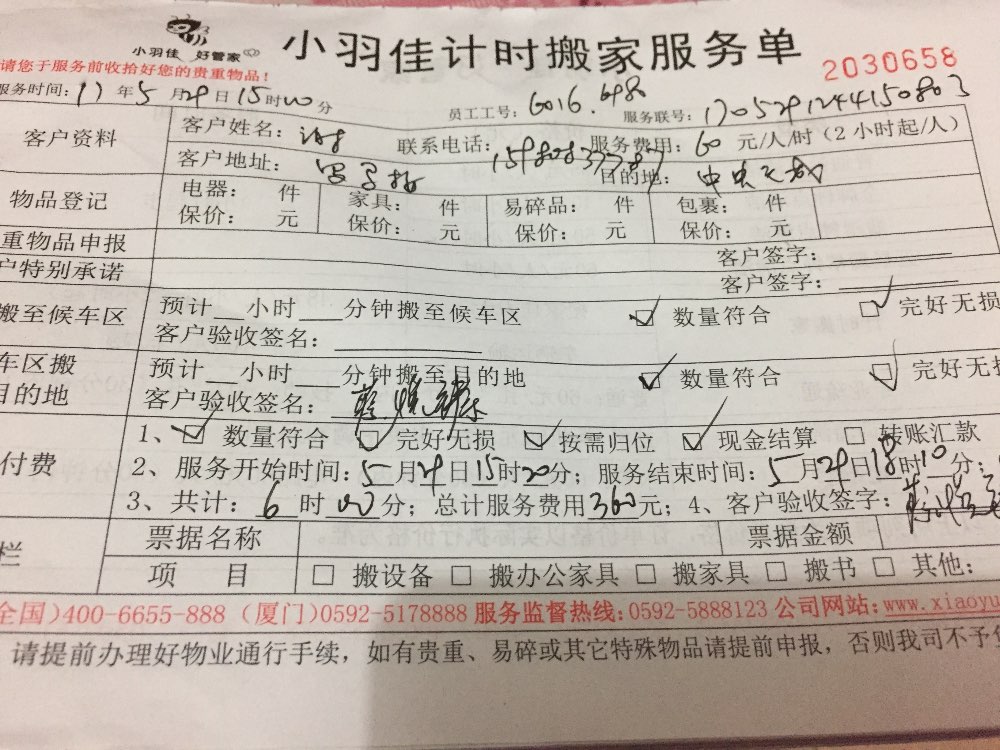 小羽佳 好管家
小羽佳计时搬家服务单
2030658
请您于服务前收拾好您的贵重物品！
服务时间：17年5月29日15时00分
员工工号：6016.698
服务联号：1705291244150803
客户资料
客户姓名： 联系电话：15980837787 服务费用：60元/人/时（2小时起/人）
客户地址：写字楼 目的地：中央
物品登记
电器： 件 家具： 件 易碎品： 件 包裹： 件
保价： 元 保价： 元 保价： 元 保价： 元
重物品申报 客户签字：
户特别承诺 客户签字：
搬至候车区
预计__小时___分钟搬至候车区 ☑ 数量符合 ☑ 完好无损
客户验收签名：
车区搬
目的地
预计__小时___分钟搬至目的地 ☑ 数量符合 ☑ 完好无损
客户验收签名：
付费
1、☑ 数量符合 ☑ 完好无损 ☑ 按需归位 ☑ 现金结算 □ 转账汇款
2、服务开始时间：5月29日15时20分；服务结束时间：5月29日18时10分；
3、共计：6时00分；总计服务费用360元；4、客户验收签字：
栏
票据名称 票据金额
项 目 □ 搬设备 □ 搬办公家具 □ 搬家具 □ 搬书 □ 其他：
全国）400-6655-888（厦门）0592-5178888 服务监督热线：0592-5888123 公司网站：www.xiaoyu
请提前办理好物业通行手续，如有贵重、易碎或其它特殊物品请提前申报，否则我司不予